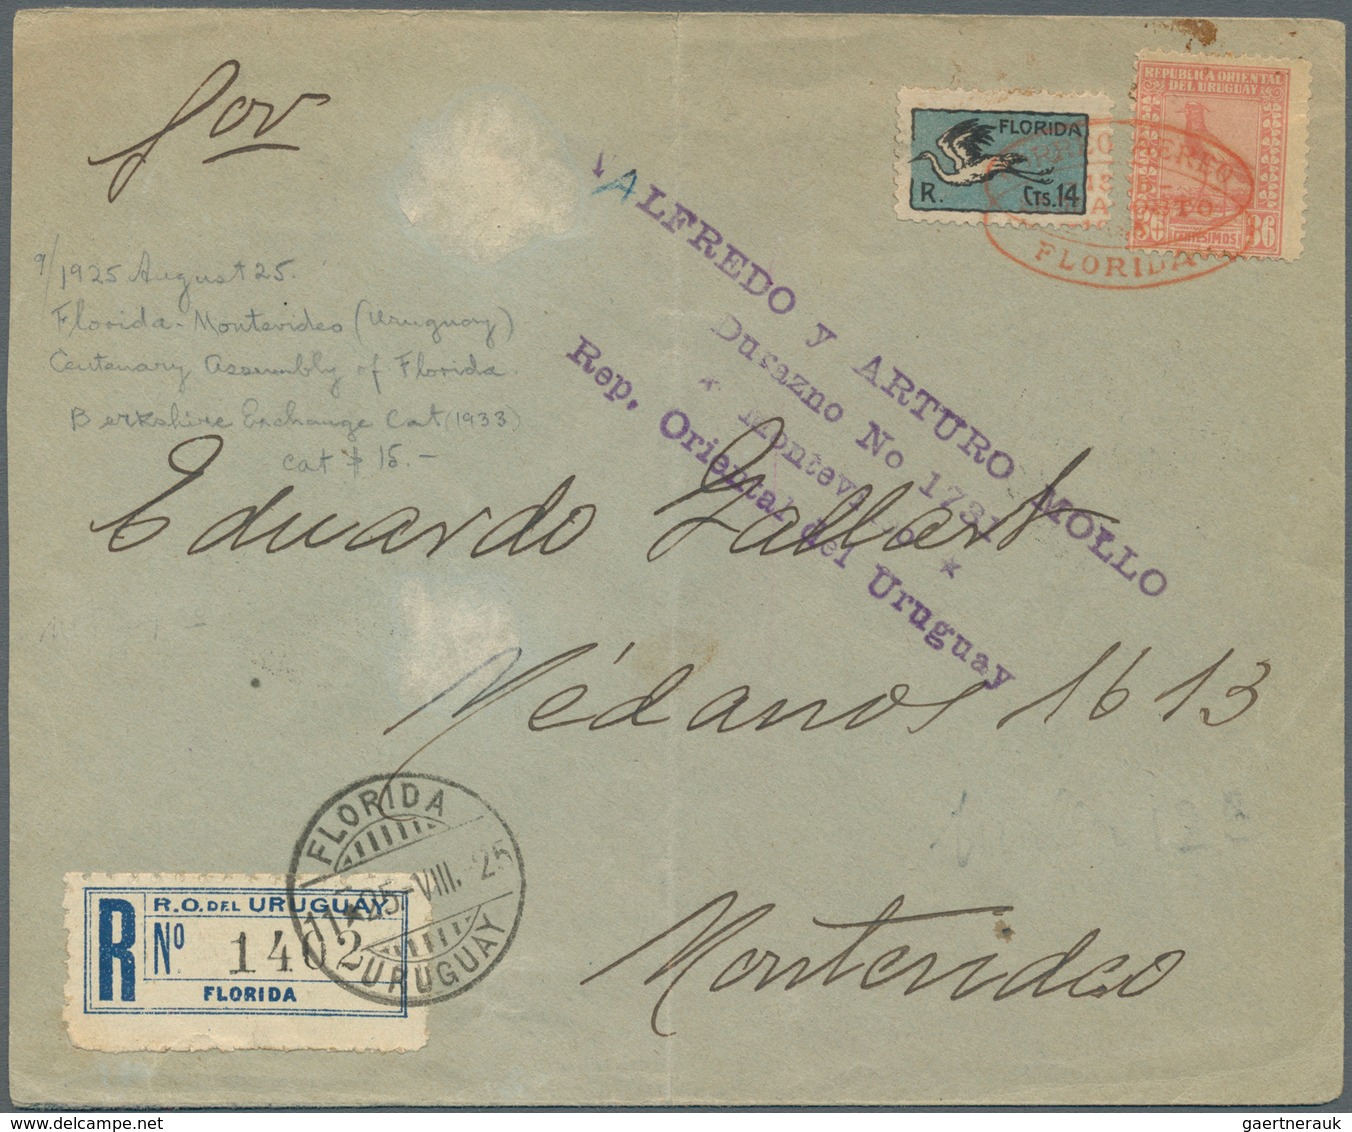 por
REPUBLICA ORIENTAL
DEL URUGUAY
36 CENTESIMOS 36
FLORIDA
R. Cts. 14
CORREO AEREO
25 AGOSTO
FLORIDA
ALFREDO y ARTURO MOLLO
Durazno No 1731
* Montevideo *
Rep. Oriental del Uruguay
9/1925 August 25.
Florida - Montevideo (Uruguay)
Centenary Assembly of Florida.
Berkshire Exchange Cat (1933)
cat $ 15.-
Eduardo Gallart
Médanos 1613
Montevideo
FLORIDA
11★25-VIII.25
URUGUAY
R. O. DEL URUGUAY
R Nº 1402
FLORIDA
gaertnerauk